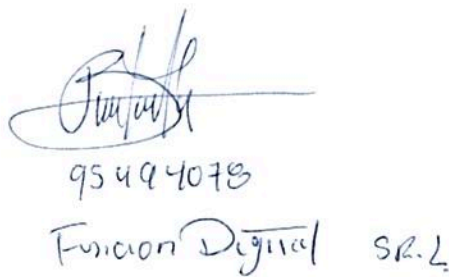 95494078
Fusion Digital SR.L